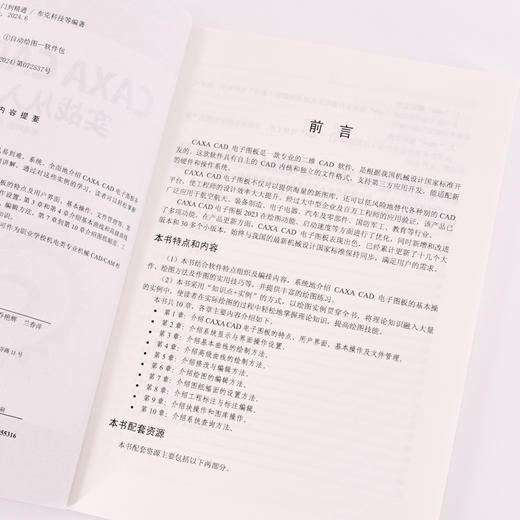 门到精通 / 布克科技等编著
2024.6
①自动绘图－软件包
2024)第072537号
内容提要
055316
前言
CAXA CAD 电子图板是一款专业的二维 CAD 软件，是根据我国机械设计国家标准开
发的。这款软件具有自主的 CAD 内核和独立的文件格式，支持第三方应用开发，能适配新
的硬件和操作系统。
CAXA CAD 电子图板不仅可以提供海量的新图库，还可以低风险地替代各种级别的 CAD
平台，使工程师的设计效率大大提升。经过大中型企业及百万工程师的应用验证，该产品已
广泛应用于航空航天、装备制造、电子电器、汽车及零部件、国防军工、教育等行业。
CAXA CAD 电子图板 2023 在绘图功能、启动速度等方面进行了优化，同时新增和改进
了多项功能。在产品更新方面，CAXA CAD 电子图板表现出色，已经累计更新了十几个大
版本和 30 多个小版本，始终与我国的最新机械设计国家标准保持同步，满足用户的需求。
本书特点和内容
（1）本书结合软件特点组织及编排内容，系统地介绍 CAXA CAD 电子图板的基本操
作、绘图方法及作图的实用技巧等，并提供丰富的绘图练习。
（2）本书采用“知识点+实例”的方式，以绘图实例贯穿全书，将理论知识融入大量
的实例中，使读者在实际绘图的过程中轻松地掌握理论知识，提高绘图技能。
本书共 10 章，各章主要内容介绍如下。
• 第 1 章：介绍 CAXA CAD 电子图板的特点、用户界面、基本操作及文件管理。
• 第 2 章：介绍系统显示与界面操作设置。
• 第 3 章：介绍基本曲线的绘制方法。
• 第 4 章：介绍高级曲线的绘制方法。
• 第 5 章：介绍修改与编辑方法。
• 第 6 章：介绍绘图的编辑方法。
• 第 7 章：介绍图纸幅面的设置方法。
• 第 8 章：介绍工程标注与标注编辑。
• 第 9 章：介绍块操作和图库操作。
• 第 10 章：介绍系统查询方法。
本书配套资源
本书配套资源主要包括以下两部分。